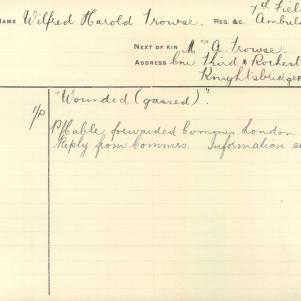 7th Fiel
NAME Wilfred Harold Trowse. REG. &C. Ambul
NEXT OF KIN Mrs A. Trowse.
ADDRESS Cnr Third & Rochest
Knightsbridge
"Wounded (gassed)".
P/Cable forwarded Commrs London
Reply from Commrs. Information s